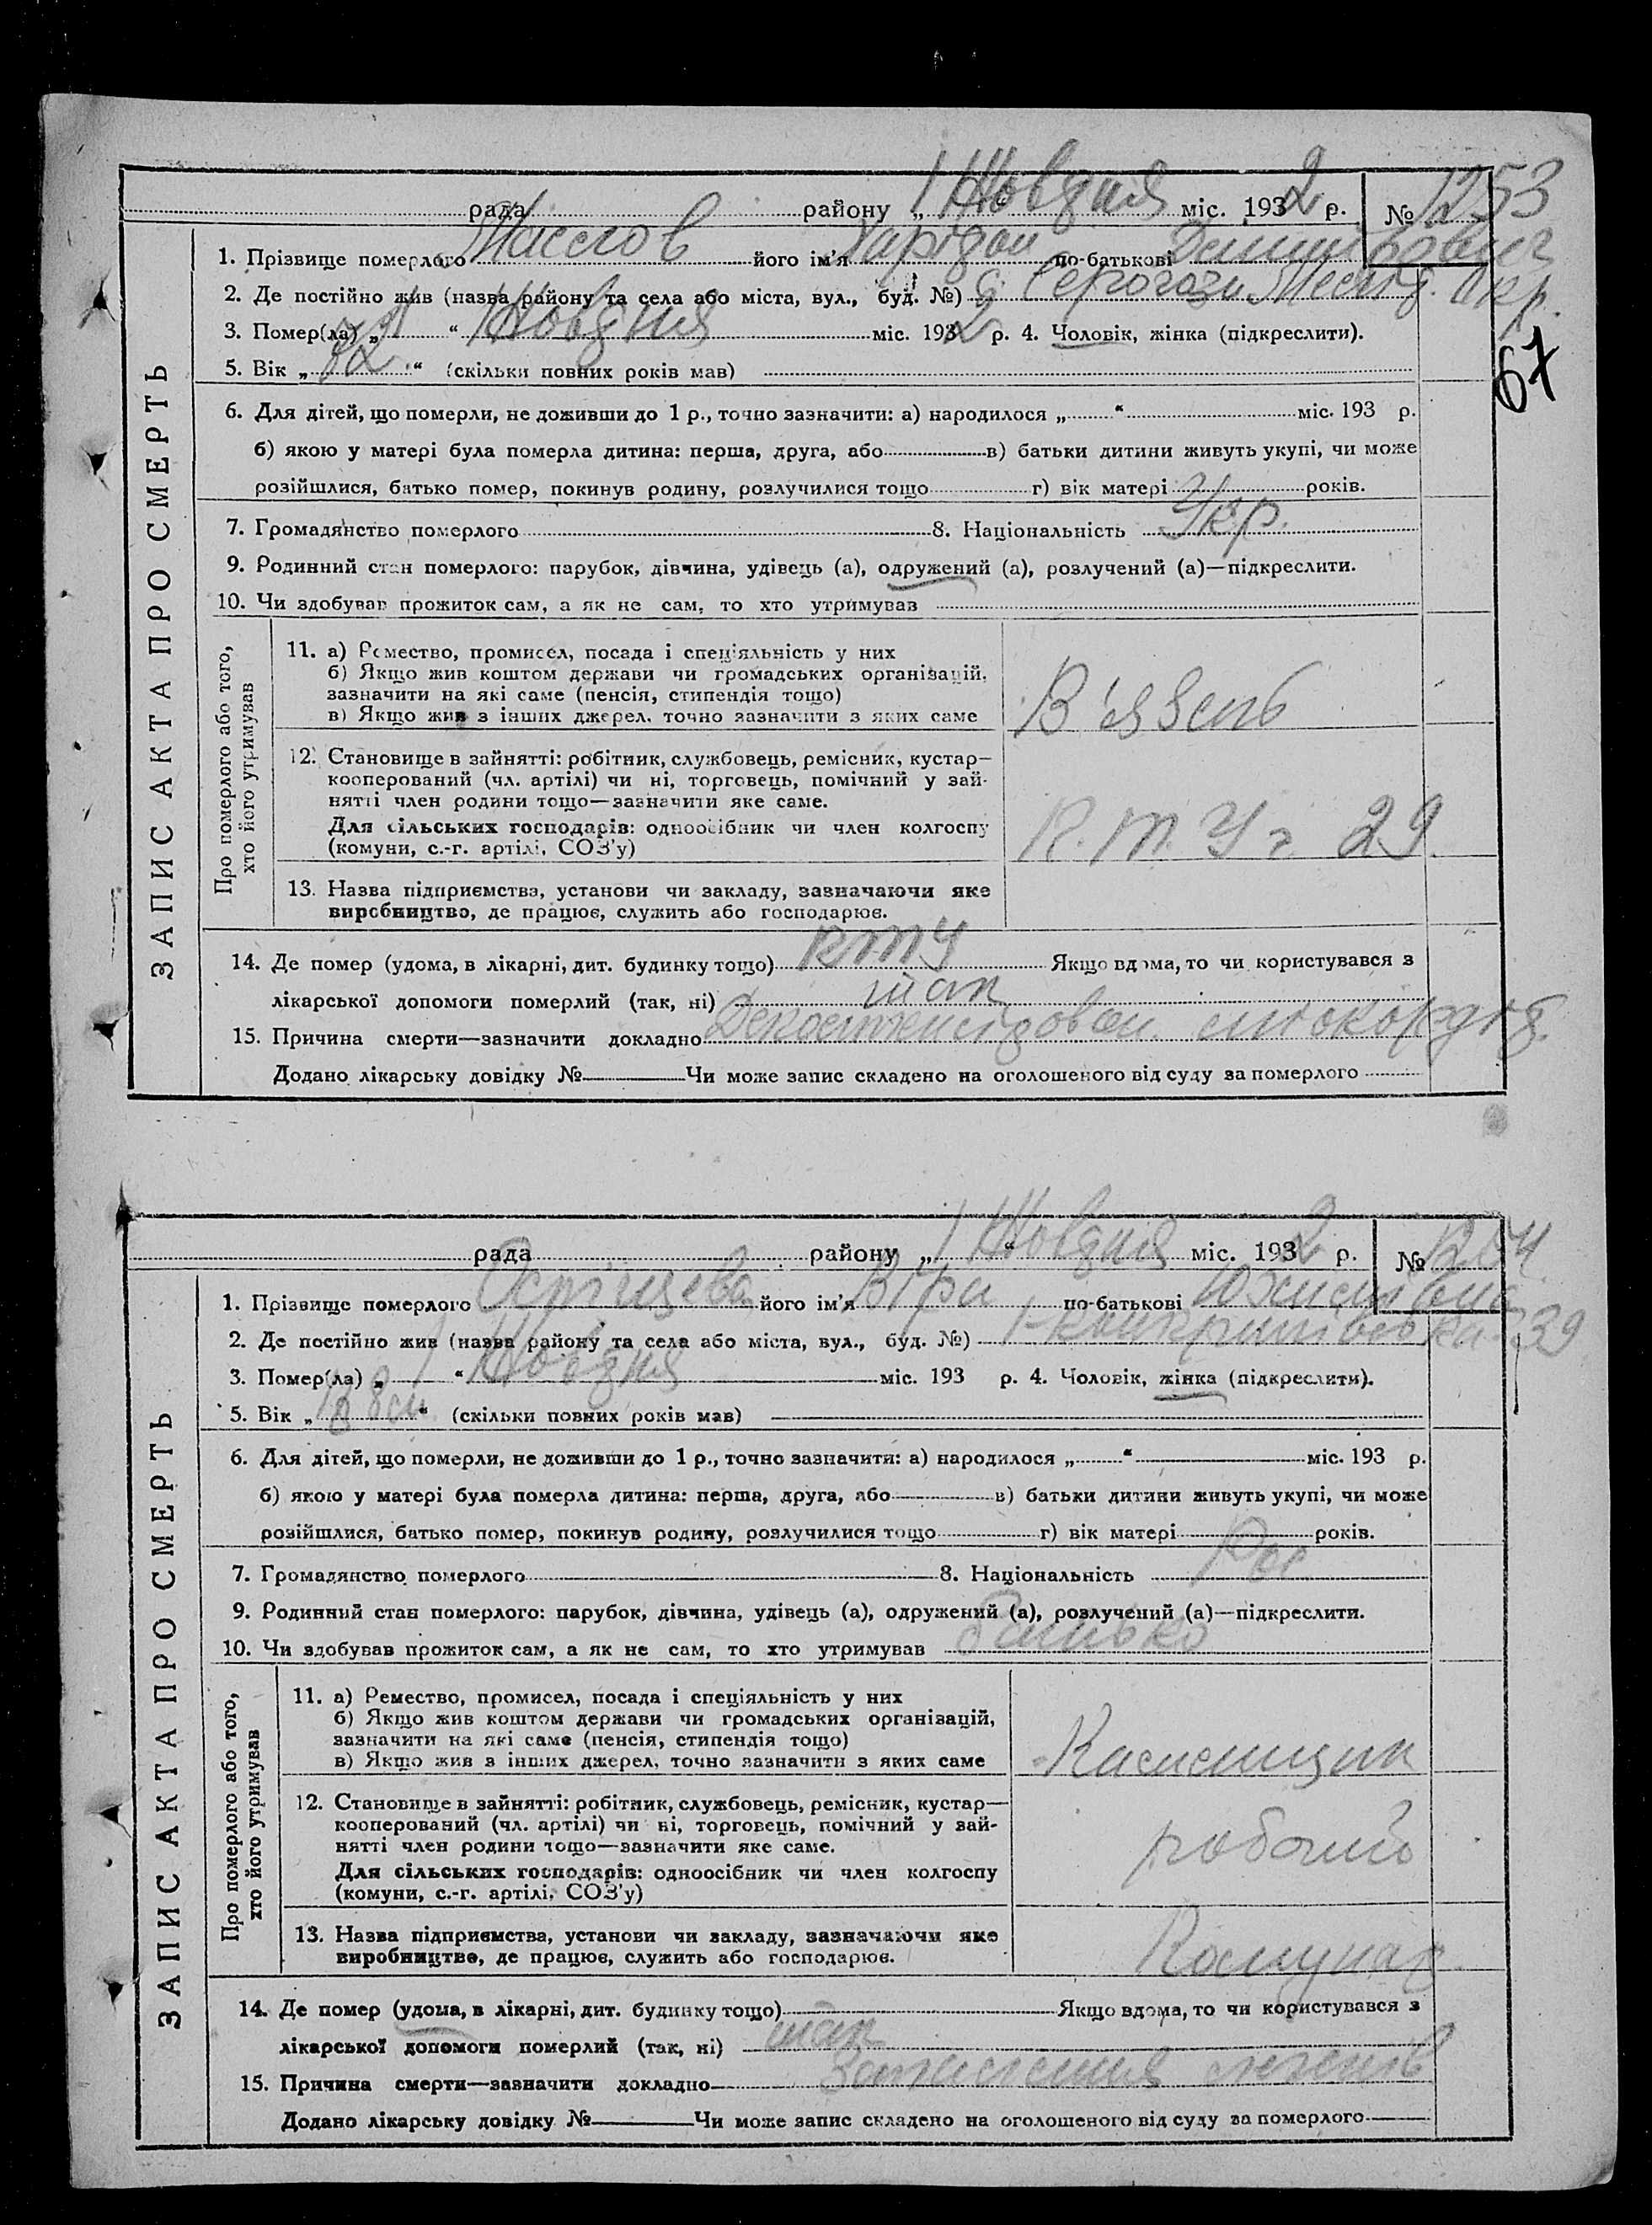 рада району „ 1 “ Жовтня міс. 1932 р. № 1253
1. Прізвище померлого його ім'я по-батькові
2. Де постійно жив (назва району та села або міста, вул., буд. №) с. Серогози
3. Помер(ла) „ 1 “ Жовтня міс. 1932 р. 4. Чоловік, жінка (підкреслити).
5. Вік „ “ (скільки повних років мав)
67
6. Для дітей, що померли, не доживши до 1 р., точно зазначити: а) народилося „ “ міс. 193 р.
б) якою у матері була померла дитина: перша, друга, або в) батьки дитини живуть укупі, чи може
розійшлися, батько помер, покинув родину, розлучилися тощо г) вік матері років.
7. Громадянство померлого 8. Національність Укр.
9. Родинний стан померлого: парубок, дівчина, удівець (а), одружений (а), розлучений (а)—підкреслити.
10. Чи здобував прожиток сам, а як не сам, то хто утримував
ЗАПИС АКТА ПРО СМЕРТЬ
Про померлого або того,
хто його утримував
11. а) Ремество, промисел, посада і спеціяльність у них
б) Якщо жив коштом держави чи громадських організацій,
зазначити на які саме (пенсія, стипендія тощо)
в) Якщо жив з інших джерел, точно зазначити з яких саме
В'язень
12. Становище в зайнятті: робітник, службовець, ремісник, кустар—
кооперований (чл. артілі) чи ні, торговець, помічний у зай-
нятті член родини тощо—зазначити яке саме.
Для сільських господарів: одноосібник чи член колгоспу
(комуни, с.-г. артілі, СОЗ'у)
29
13. Назва підприємства, установи чи закладу, зазначаючи яке
виробництво, де працює, служить або господарює.
14. Де помер (удома, в лікарні, дит. будинку тощо) Якщо вдома, то чи користувався з
лікарської допомоги померлий (так, ні) так
15. Причина смерти—зазначити докладно
Додано лікарську довідку № Чи може запис складено на оголошеного від суду за померлого
рада району „ 1 “ Жовтня міс. 1932 р. № 1254
1. Прізвище померлого його ім'я Віра по-батькові
2. Де постійно жив (назва району та села або міста, вул., буд. №) 39
3. Помер(ла) „ 1 “ Жовтня міс. 193 р. 4. Чоловік, жінка (підкреслити).
5. Вік „ “ (скільки повних років мав)
6. Для дітей, що померли, не доживши до 1 р., точно зазначити: а) народилося „ “ міс. 193 р.
б) якою у матері була померла дитина: перша, друга, або в) батьки дитини живуть укупі, чи може
розійшлися, батько помер, покинув родину, розлучилися тощо г) вік матері років.
7. Громадянство померлого 8. Національність Рос.
9. Родинний стан померлого: парубок, дівчина, удівець (а), одружений (а), розлучений (а)—підкреслити.
10. Чи здобував прожиток сам, а як не сам, то хто утримував батько
ЗАПИС АКТА ПРО СМЕРТЬ
Про померлого або того,
хто його утримував
11. а) Ремество, промисел, посада і спеціяльність у них
б) Якщо жив коштом держави чи громадських організацій,
зазначити на які саме (пенсія, стипендія тощо)
в) Якщо жив з інших джерел, точно зазначити з яких саме
Каменщик
12. Становище в зайнятті: робітник, службовець, ремісник, кустар—
кооперований (чл. артілі) чи ні, торговець, помічний у зай-
нятті член родини тощо—зазначити яке саме.
Для сільських господарів: одноосібник чи член колгоспу
(комуни, с.-г. артілі, СОЗ'у)
13. Назва підприємства, установи чи закладу, зазначаючи яке
виробництво, де працює, служить або господарює.
Комунар
14. Де помер (удома, в лікарні, дит. будинку тощо) Якщо вдома, то чи користувався з
лікарської допомоги померлий (так, ні) так
15. Причина смерти—зазначити докладно Запалення легенів
Додано лікарську довідку № Чи може запис складено на оголошеного від суду за померлого